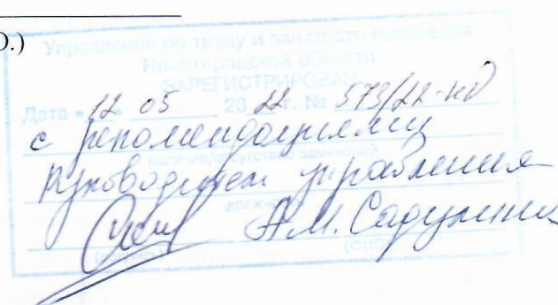 О.)
Управление по труду и занятости населения
Нижегородской области
ЗАРЕГИСТРИРОВАН
Дата «12» 05 2022 г. № 573/22-кд
с рекомендациями
наличие/отсутствие замечаний
руководитель управления
А.М. Садулина
(ФИО)